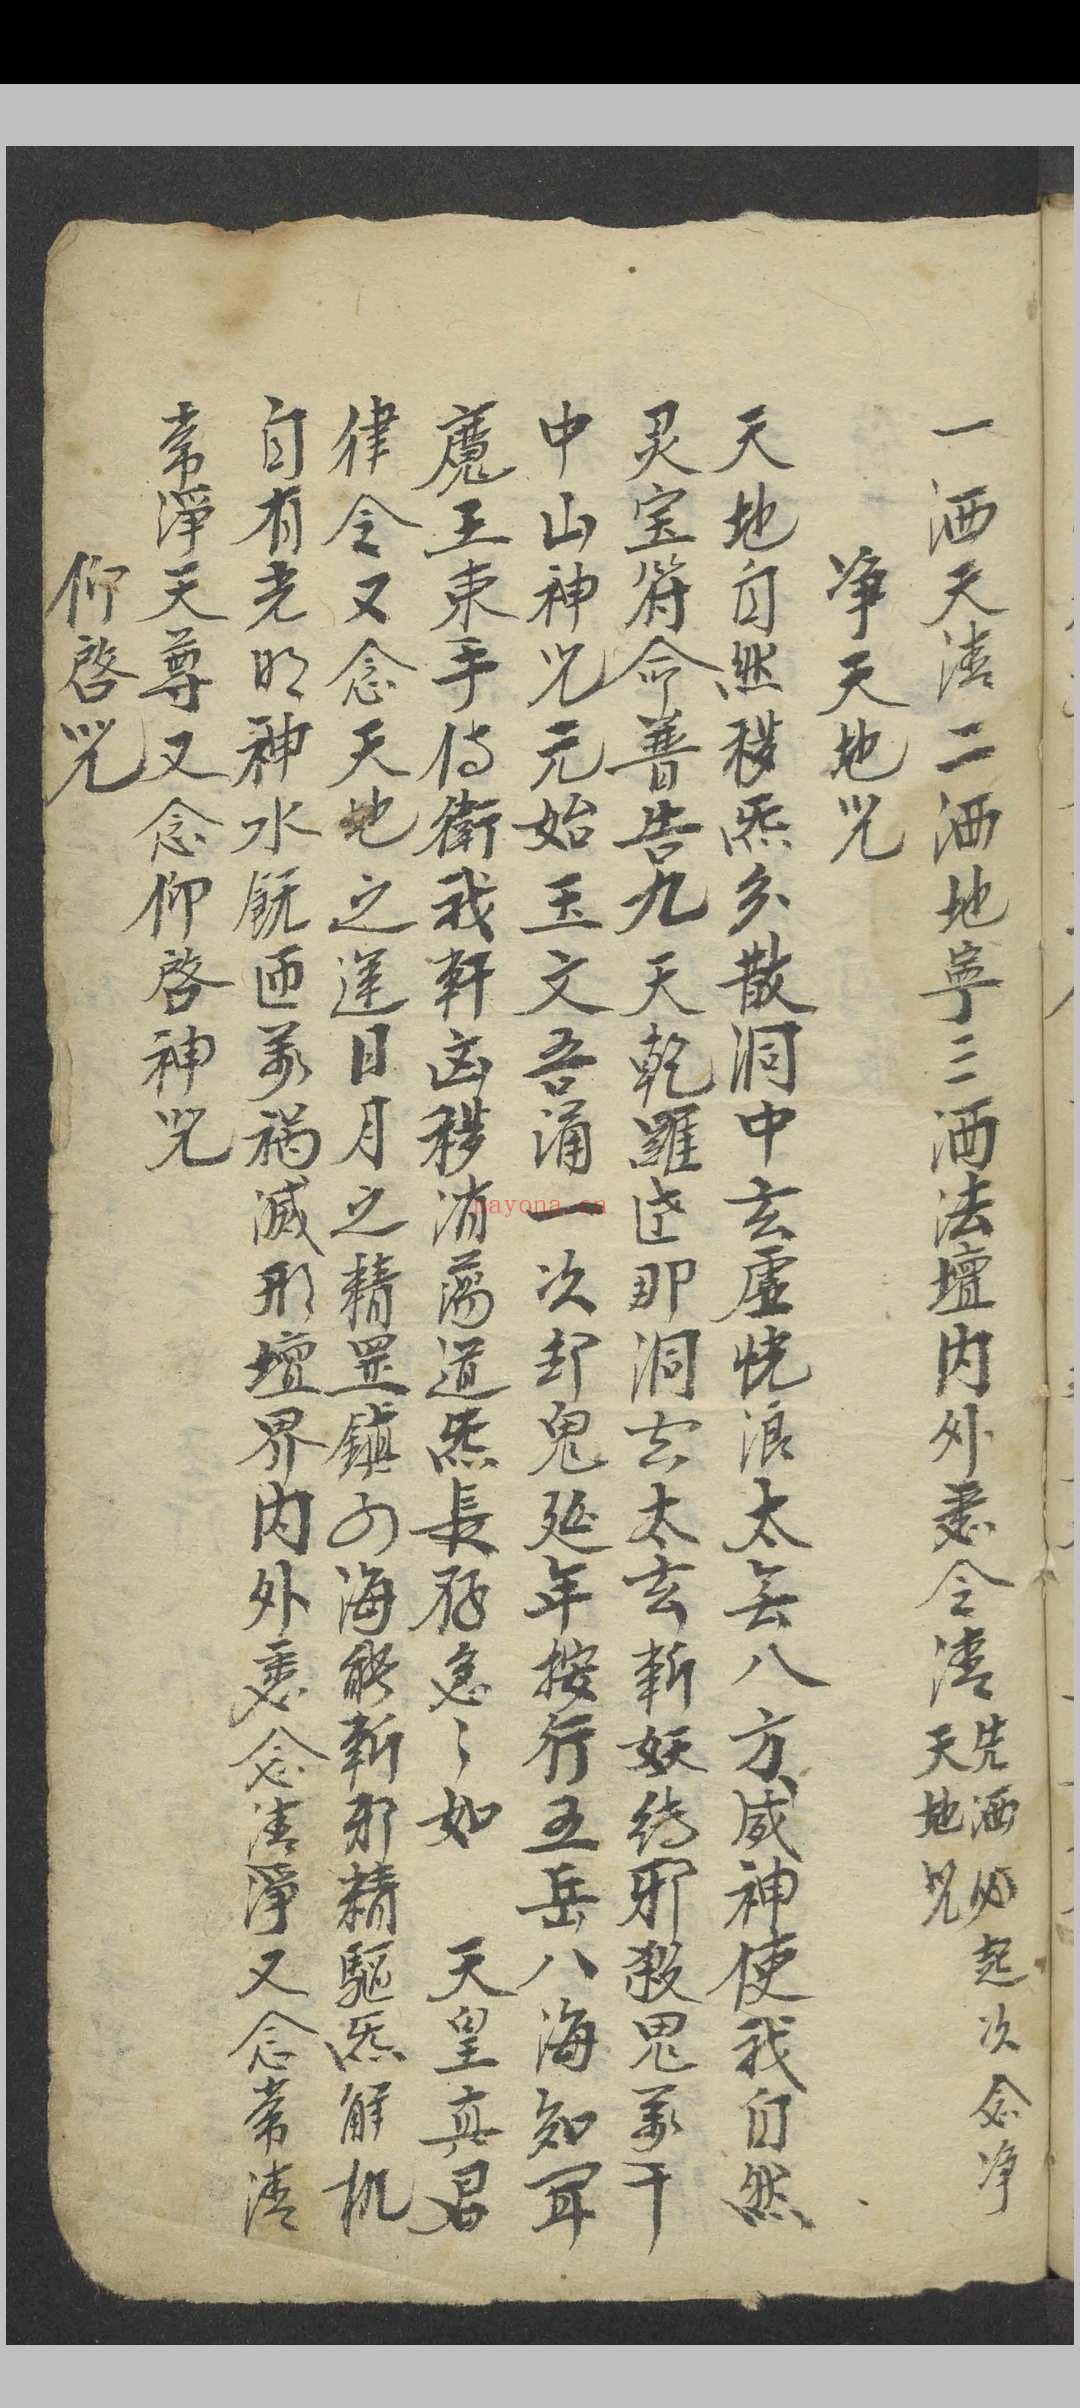 一洒天清二洒地寧三洒法壇内外悉令清先洒必起次念净
天地咒
净天地咒
天地自然秽炁分散洞中玄虚恍浪太玄八方威神使我自然
灵宝符命普告九天乾羅那洞玄太玄斬妖縛邪殺鬼萬千
中山神咒元始玉文吾涌一次却鬼延年按行五岳八海知闻
魔王束手侍衛我軒凶秽消蕩道炁長存急々如 天皇真君
律令又念天地之運日月之精罡鎮四海能斬邪精驅炁解机
自有光明神水既洒萬祸滅形壇界内外悉念清淨又念常清
常淨天尊又念仰啓神咒
仰啓咒
nayona.cn